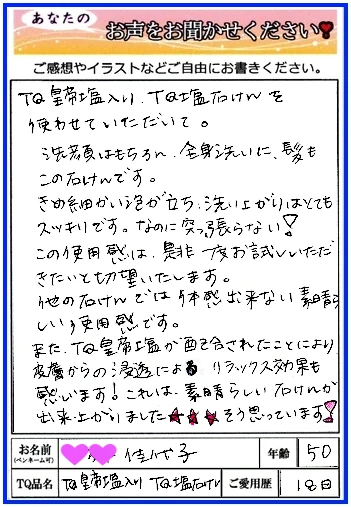 あなたの
お声をお聞かせください
ご感想やイラストなどご自由にお書きください。
TQ皇帝塩入り、TQ塩石けんを
使わせていただいて。
洗顔はもちろん、全身洗いに、髪も
この石けんです。
きめ細かい泡が立ち、洗い上がりはとても
スッキリです。なのに突っ張らない!
この使用感は、是非一度お試しいただ
きたいと切望いたします。
他の石けんでは体感出来ない素晴ら
しい使用感です。
また、TQ皇帝塩が配合されたことにより
皮膚からの浸透による リラックス効果も
感じます!これは、素晴らしい石けんが
出来上がりました★★★そう思っています!
お名前
(ペンネーム可)
佳代子
年齢
50
TQ品名
TQ皇帝塩入り TQ塩石けん
ご愛用歴
18日